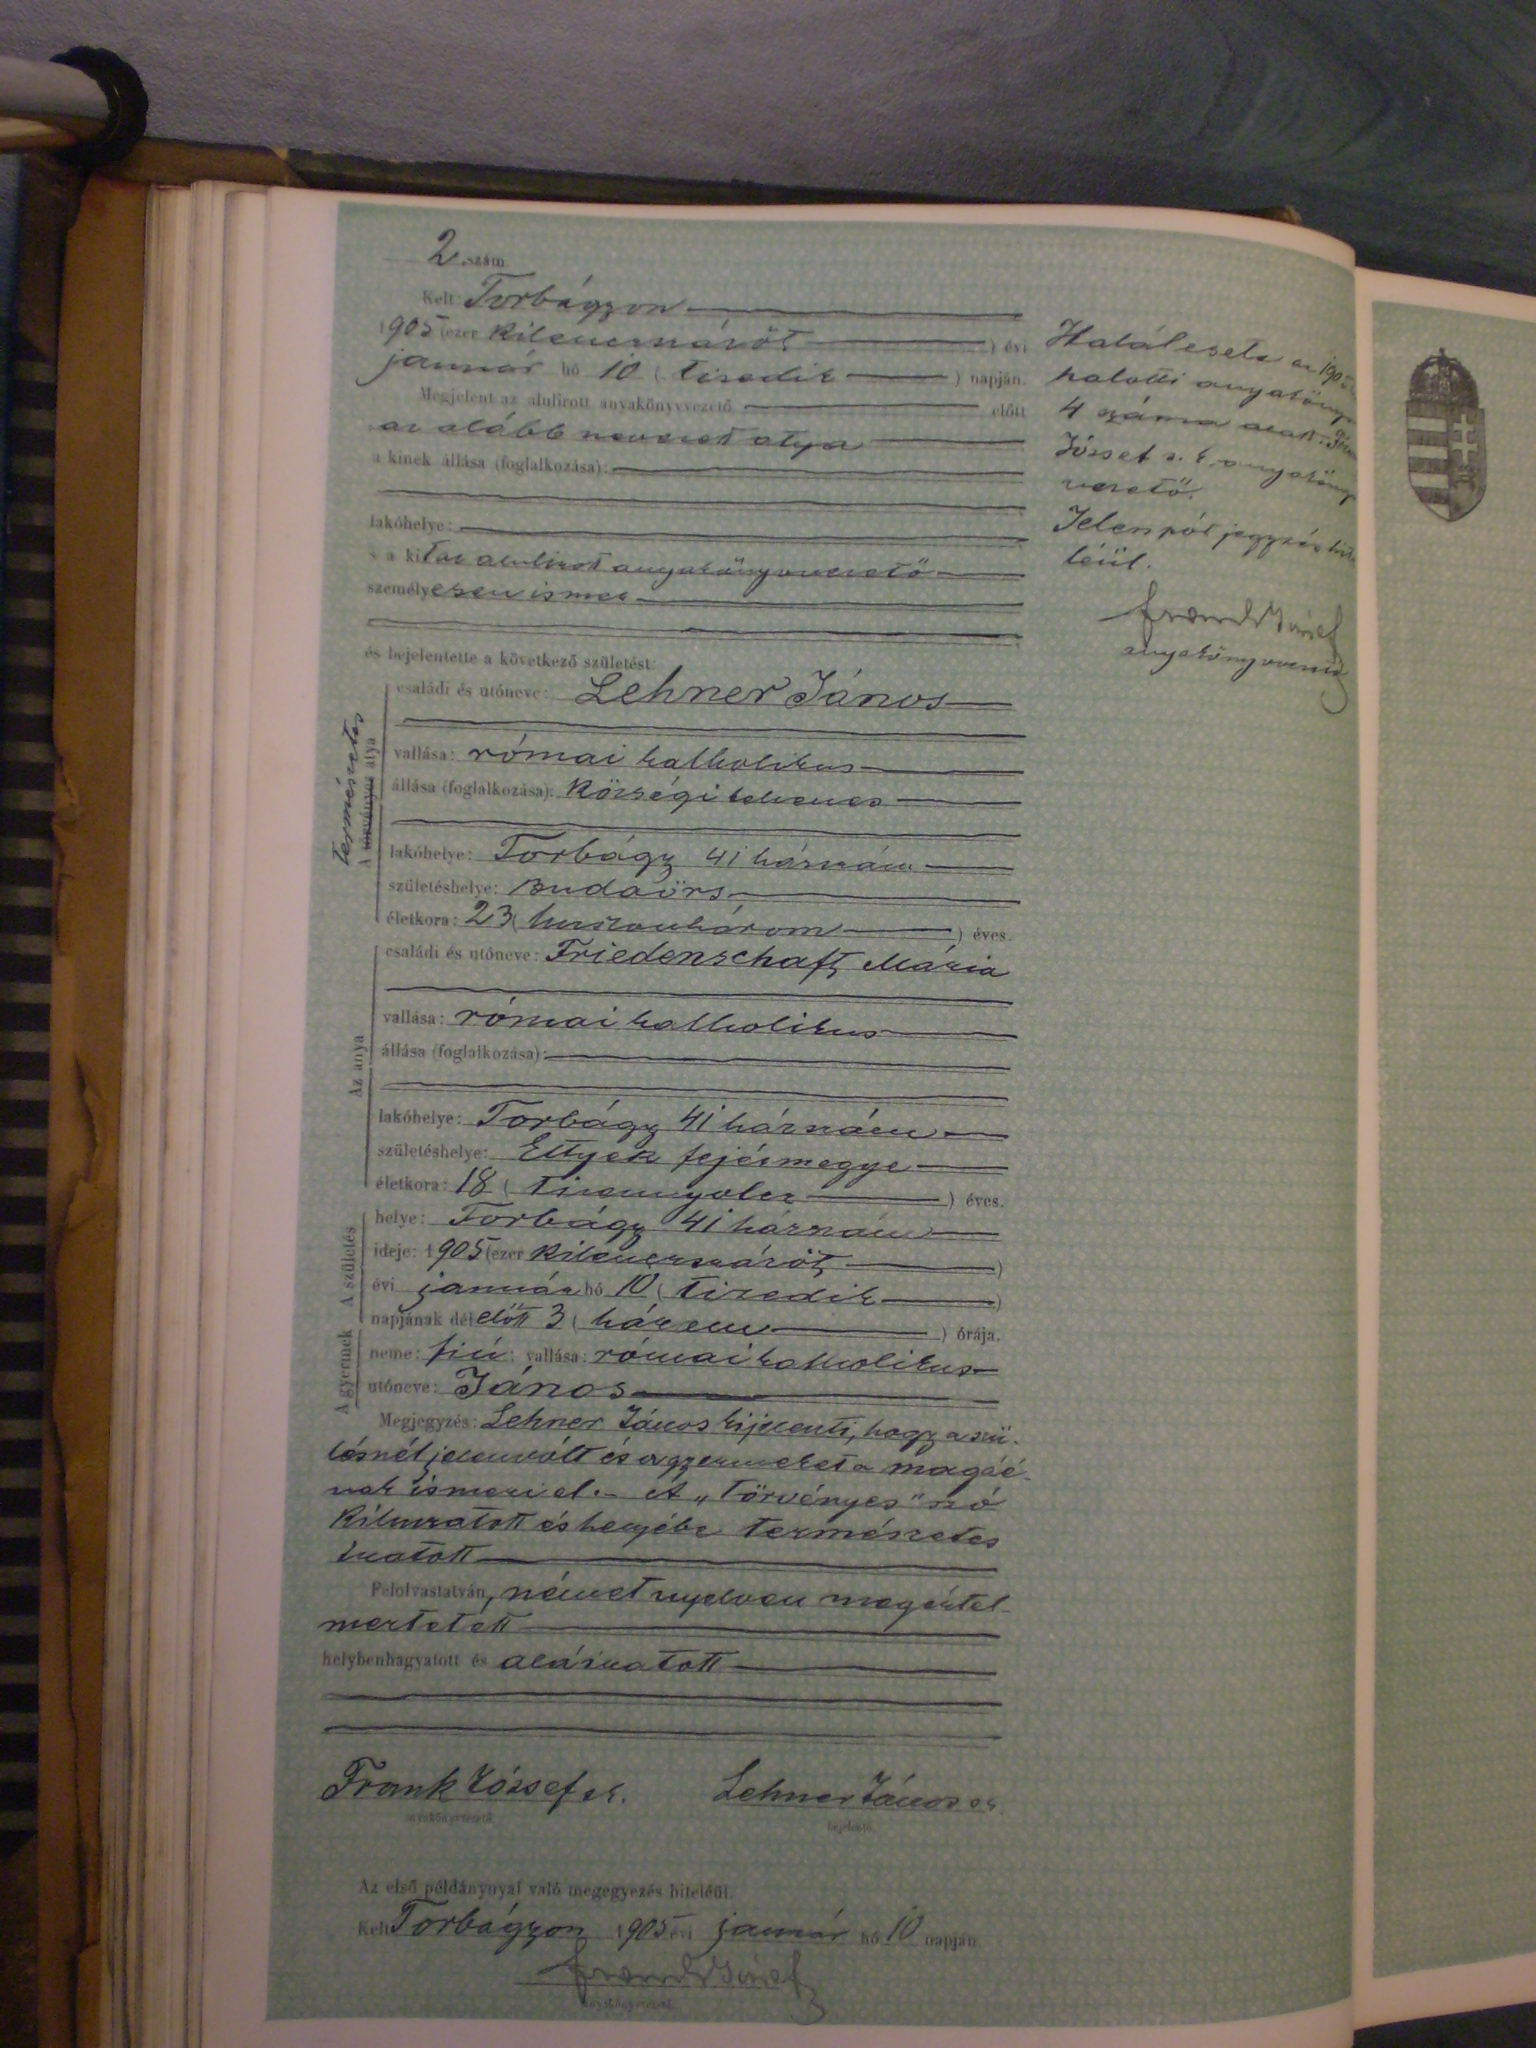 2 szám
Kelt: Torbágyon
1905 (ezer kilencszázöt) évi
január hó 10 (tizedik) napján.
Megjelent az alulirott anyakönyvvezető előtt
az alább nevezett atya
a kinek állása (foglalkozása):
lakóhelye:
s a kit az alulirott anyakönyvvezető
személyesen ismer
és bejelentette a következő születést:
A törvényes atya
természetes
családi és utóneve: Lehner János
vallása: római katholikus
állása (foglalkozása): községi
lakóhelye: Torbágy 41 házszám
születéshelye: Budaörs
életkora: 23 (huszonhárom) éves.
Az anya
családi és utóneve: Friedenschaft Mária
vallása: római katholikus
állása (foglalkozása):
lakóhelye: Torbágy 41 házszám
születéshelye: Ettyek fejérmegye
életkora: 18 (tizennyolcz) éves.
A születés
helye: Torbágy 41 házszám
ideje: 1905 (ezer kilencszázöt)
évi január hó 10 (tizedik)
napjának délelőtt 3 (három) órája.
A gyermek
neme: fiú; vallása: római katholikus
utóneve: János
Megjegyzés: Lehner János kijelenti, hogy a szü-
lésnél jelenvolt és a gyermeket a magáé-
nak ismeri el. – A „törvényes" szó
kihuzatott és helyébe természetes
iratott
Felolvastatván, német nyelven megértel-
meztetett
helybenhagyatott és aláíratott
Frank József sk. Lehner János sk
anyakönyvvezető. bejelentő.
Az első példánynyal való megegyezés hiteléül.
Kelt Torbágyon 1905 évi január hó 10 napján
Frank József
anyakönyvvezető.
Halálesete az 1905
halotti anyakönyv
4 száma alatt.
József s. k. anyakönyv
vezető.
Jelen pót jegyzés hite
léül.
Frank József
anyakönyvvezető